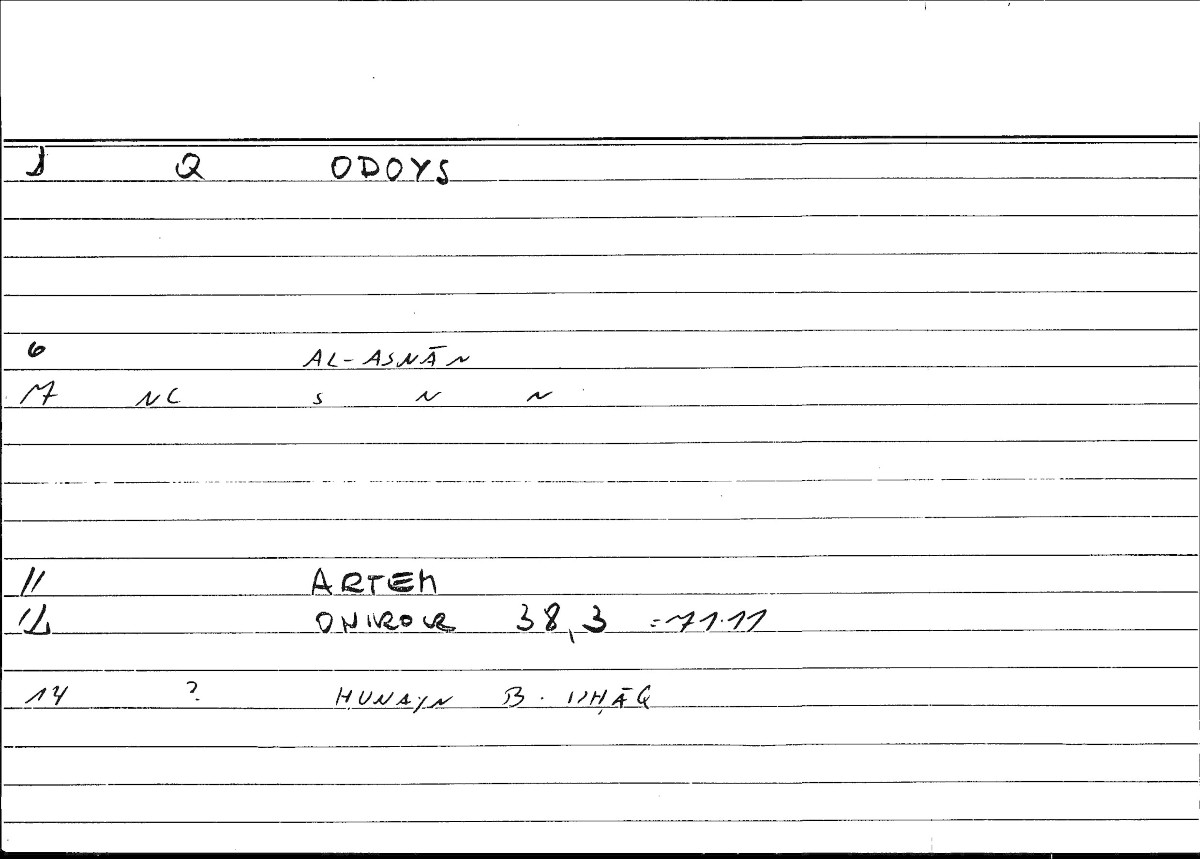 1 Q ODOYS
6 AL-ASNĀN
7 NC S N N
11 ARTEM
12 ONIROCR 38,3 =71.11
14 ? ḤUNAYN B. ISḤĀQ